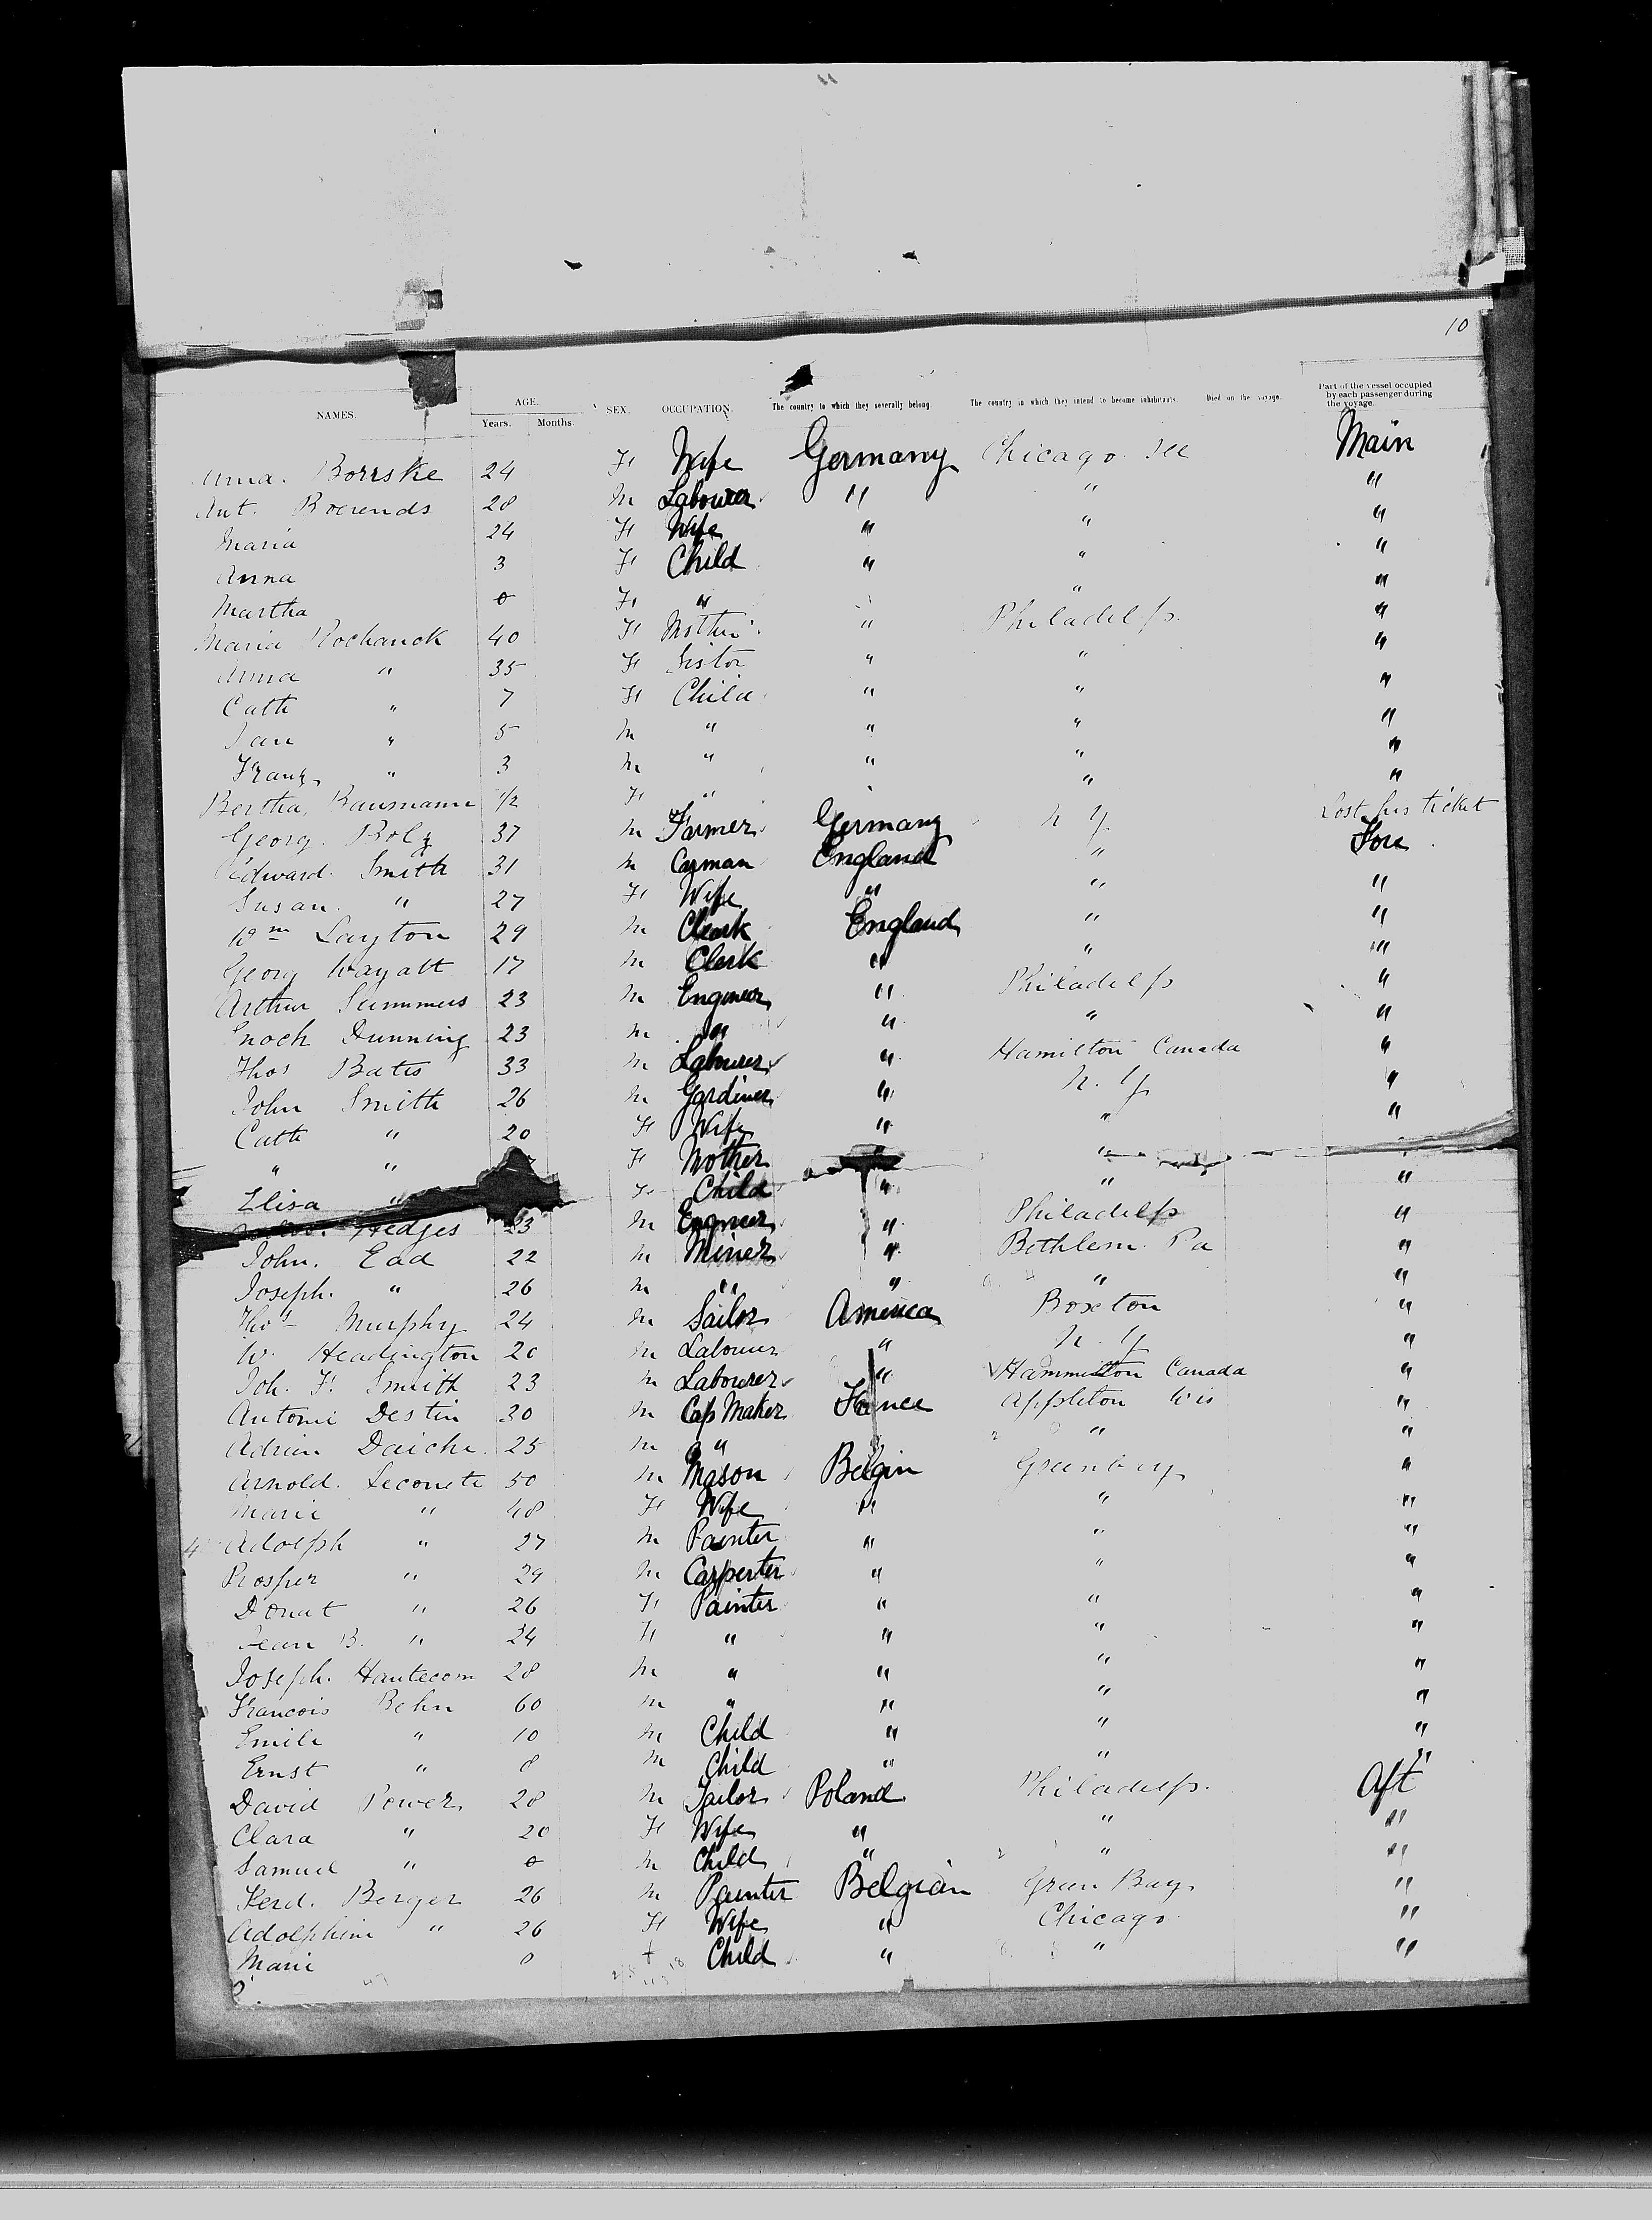 "
10
NAMES. AGE. Years. Months. SEX. OCCUPATION. The country to which they severally belong. The country in which they intend to become inhabitants. Died on the voyage. Part of the vessel occupied by each passenger during the voyage.
Anna. Borrske 24 F Wife Germany Chicago Ill Main
Ant. Boerends 28 M Labourer " " "
Maria 24 F Wife " " "
Anna 3 F Child " " "
Martha 0 F " " " "
Maria 40 F Mother " Philadelp. "
Anna " 35 F Sister " " "
Cath " 7 F Child " " "
Jan " 5 M " " " "
Franz " 3 M " " " "
Bertha Baumann 1/2 F " " " "
Georg. Bolz 37 M Farmer Germany N Y Lost his ticket
Edward Smith 31 M Carman England " Fore
Susan. " 27 F Wife " " "
Wm Layton 29 M Clerk England " "
Georg Wayatt 17 M Clerk " " "
Arthur Summers 23 M Engineer " Philadelp "
Enoch Dunning 23 M " " " "
Thos Bates 33 M Labourer " Hamilton Canada "
John Smith 26 M Gardiner " N. Y "
Cath " 20 F Wife " " "
" " F Mother " "
Elisa " F Child " " "
Hedges 23 M Engineer " Philadelp "
John. Ead 22 M Miner " Bethlem. Pa "
Joseph. " 26 M " " " "
Thos Murphy 24 M Sailor America Boxton "
W. Headington 20 M Labourer " N. Y "
Joh. F. Smith 23 M Labourer " Hammilton Canada "
Antoni Destin 30 M Cap Maker France Appleton Wis "
Adrien Daiche. 25 M " " "
Arnold. Leconte 50 M Mason Belgin Greenbay "
Marie " 48 F Wife " " "
4 Adolph " 27 M Painter " " "
Prosper " 29 M Carpenter " " "
Donat " 26 F Painter " " "
Jean B. " 24 F " " " "
Joseph. Hautecom 28 M " " " "
Francois Behn 60 M " " " "
Emile " 10 M Child " " "
Ernst " 8 M Child " " "
David Power 28 M Tailor Poland Philadelp. Aft
Clara " 20 F Wife " " "
Samuel " 0 M Child " " "
Ferd. Berger 26 M Painter Belgian Green Bay "
Adolphine " 26 F Wife " Chicago "
Marie 0 f Child " " "